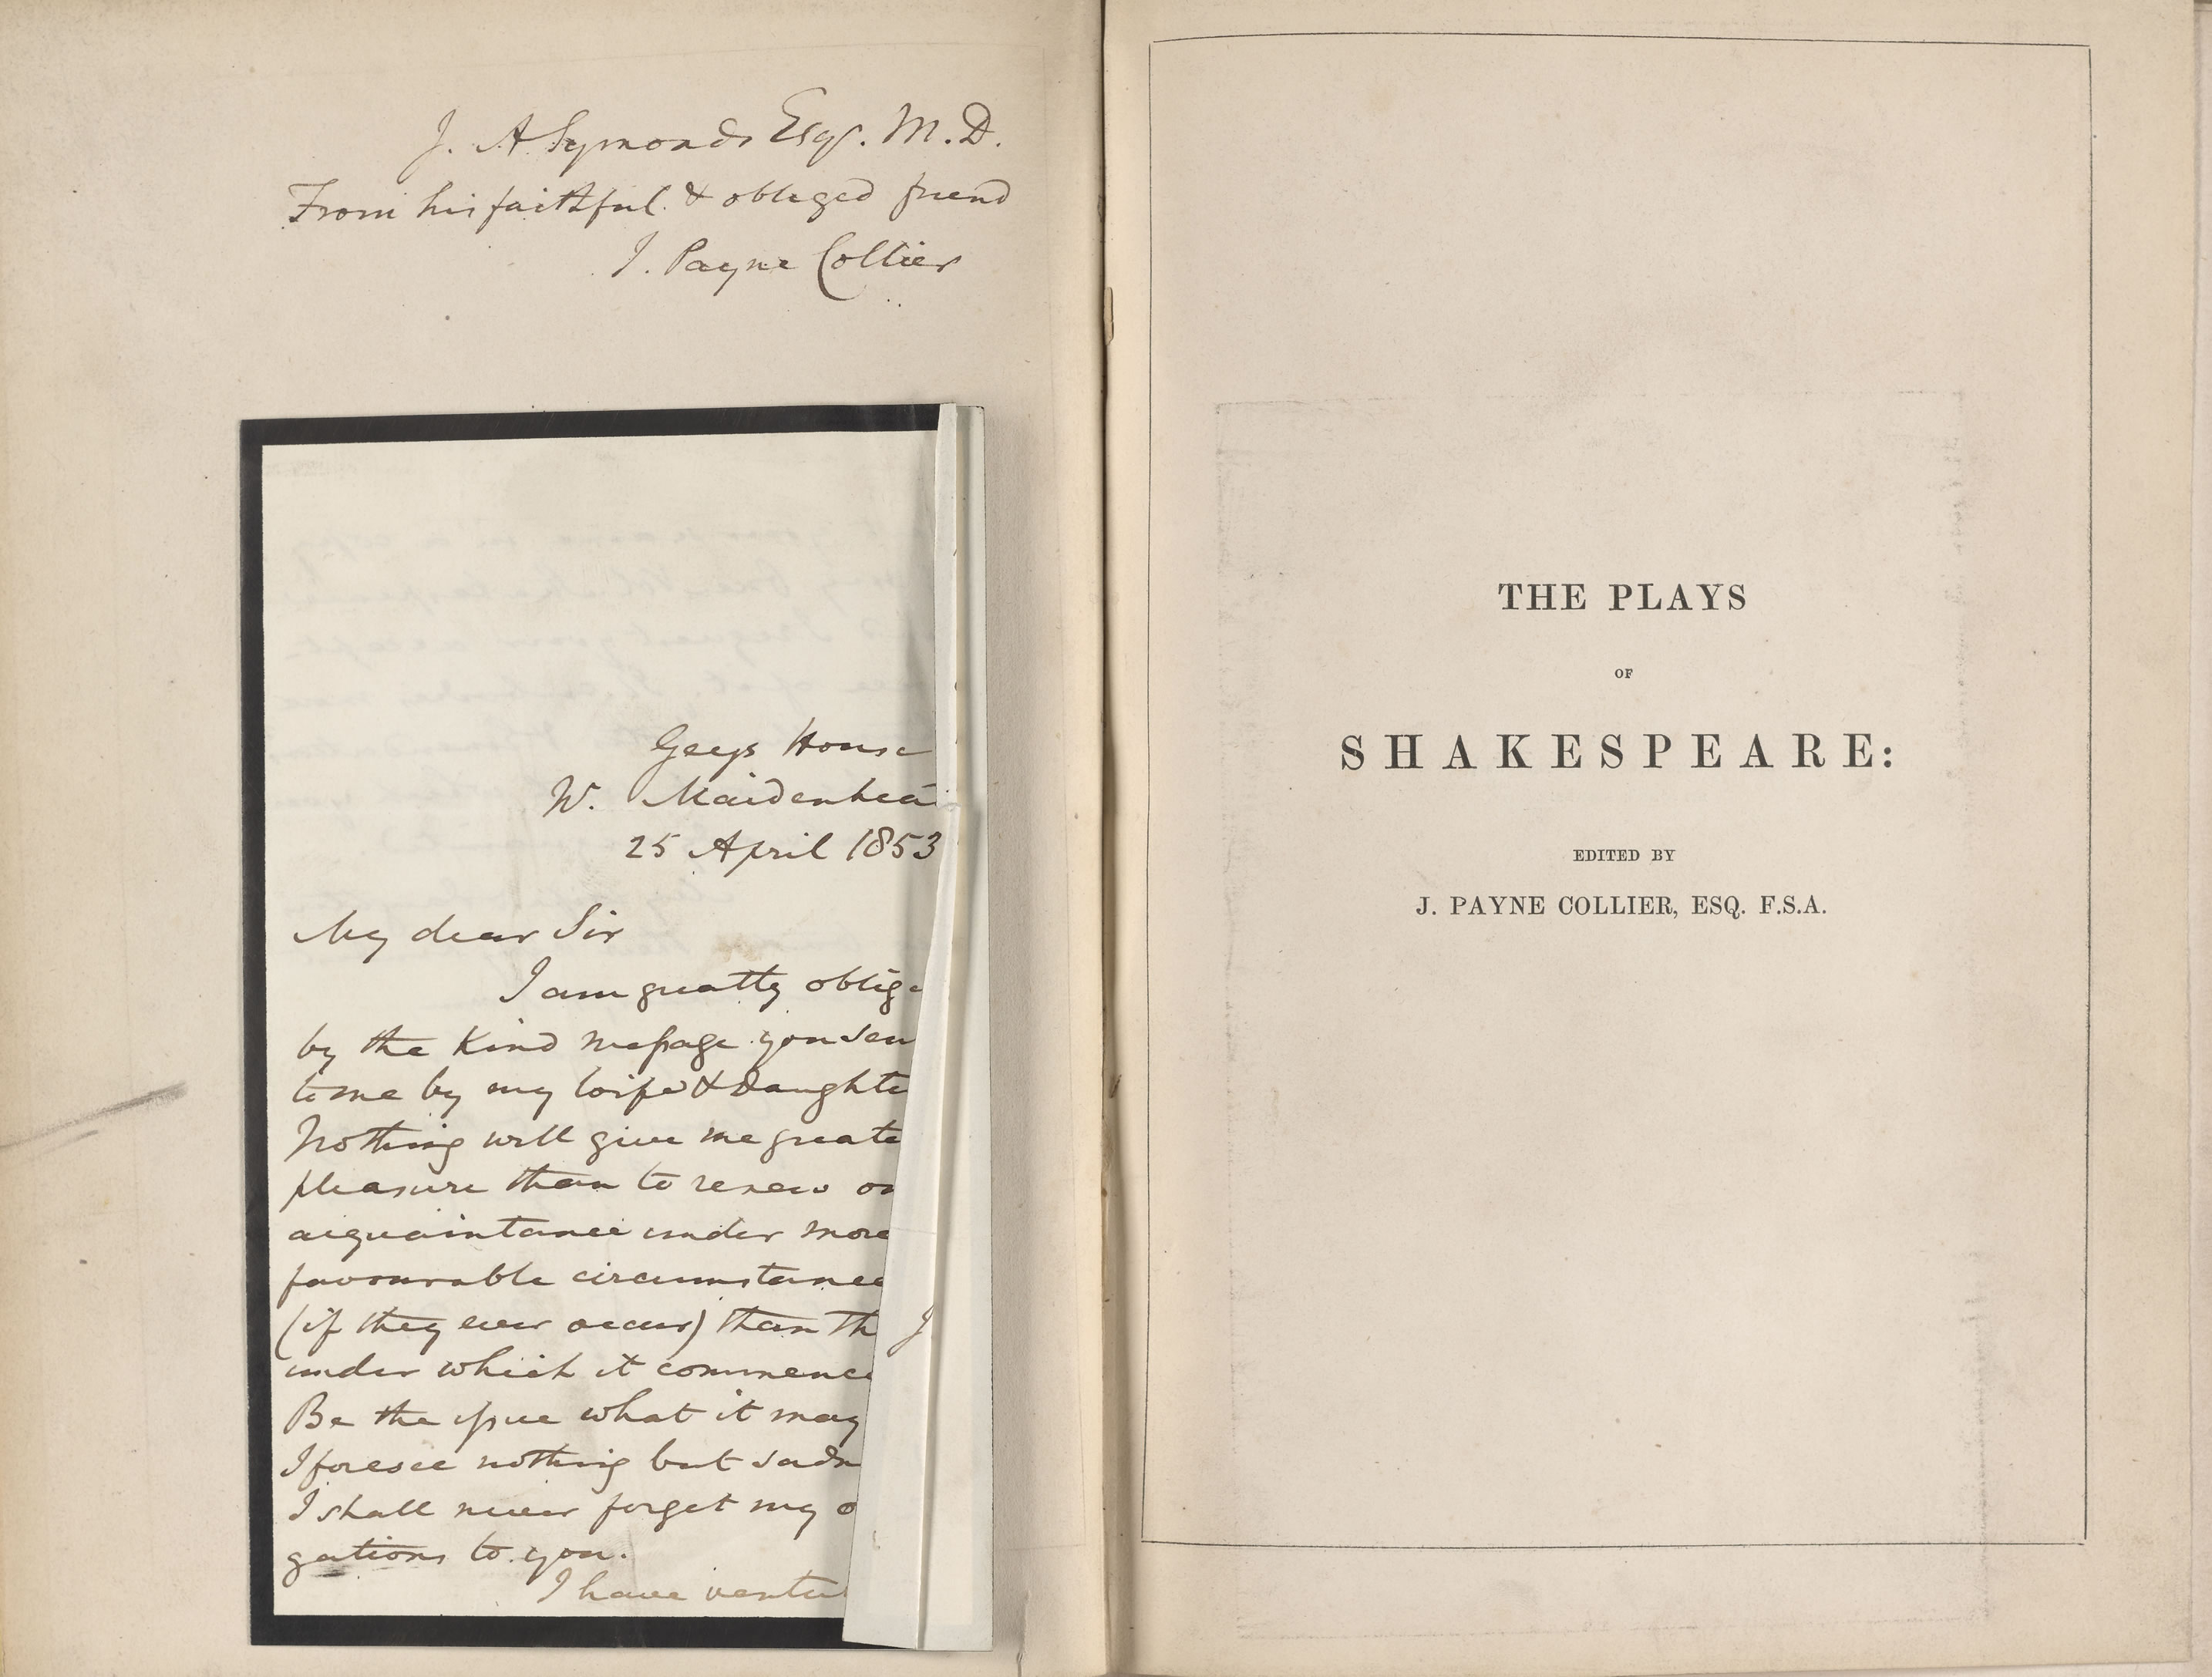 J. A Symonds Esqr. M.D.
From his faithful & obliged friend
J. Payne Collier
Geys House
W. Maidenhead
25 April 1853
My dear Sir
I am greatly oblige
by the kind message you sen
to me by my wife & daughte
Nothing will give me greate
pleasure than to renew ou
acquaintance under more
favourable circumstance
(if they ever occur) than th
under which it commence
Be the issue what it may
I foresee nothing but sadn
I shall never forget my o
gations to you.
I have ventu
J
THE PLAYS
OF
SHAKESPEARE:
EDITED BY
J. PAYNE COLLIER, ESQ. F.S.A.